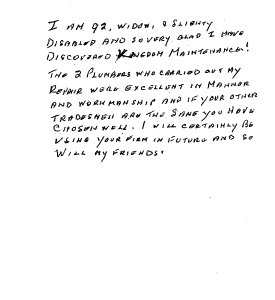 I AM 92, WIDOW, & SLIGHTY
DISABLED AND SO VERY GLAD I HAVE
DISCOVERED KINGDOM MAINTENANCE!
THE 2 PLUMBERS WHO CARRIED OUT MY
REPAIR WERE EXCELLENT IN MANNER
AND WORKMANSHIP AND IF YOUR OTHER
TRADESMEN ARE THE SAME YOU HAVE
CHOSEN WELL. I WILL CERTAINLY BE
USING YOUR FIRM IN FUTURE AND SO
WILL MY FRIENDS.